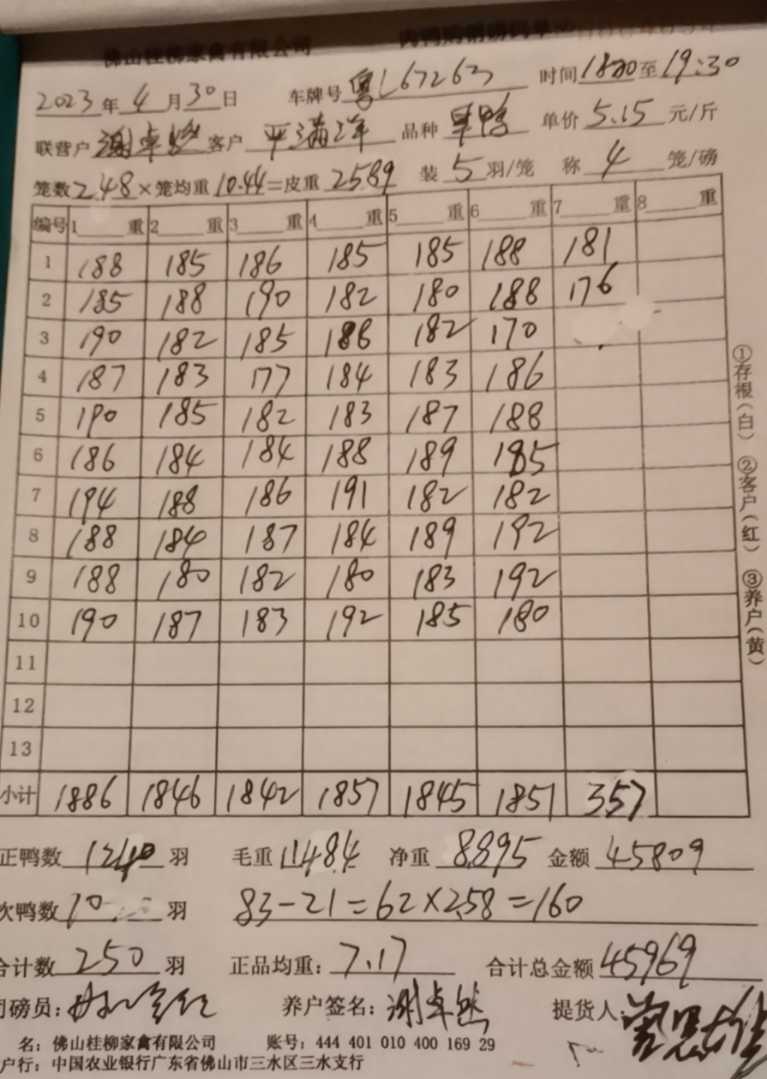 佛山桂柳家禽有限公司 肉鸭购销磅码单
2023年4月30日 车牌号 粤L67263 时间1820至19:30
联营户 谢卓 客户 平满洋 品种 旱鸭 单价 5.15 元/斤
笼数248×笼均重10.44=皮重 2589 装 5 羽/笼 称 4 笼/磅
编号 1 重 2 重 3 重 4 重 5 重 6 重 7 重 8 重
1 188 185 186 185 185 188 181
2 185 188 190 182 180 188 176
3 190 182 185 186 182 170
4 187 183 177 184 183 186
5 190 185 182 183 187 188
6 186 184 184 188 189 185
7 194 188 186 191 182 182
8 188 184 187 184 189 192
9 188 180 182 180 183 192
10 190 187 183 192 185 180
11
12
13
小计 1886 1846 1842 1857 1845 1851 357
正鸭数 1240 羽 毛重 11484 净重 8895 金额 45809
次鸭数 10 羽 83-21=62×2.58=160
合计数 250 羽 正品均重: 7.17 合计总金额 45969
司磅员: 养户签名: 谢卓 提货人:
名: 佛山桂柳家禽有限公司 账号: 444 401 010 400 169 29
户行: 中国农业银行广东省佛山市三水区三水支行
①存根(白) ②客户(红) ③养户(黄)